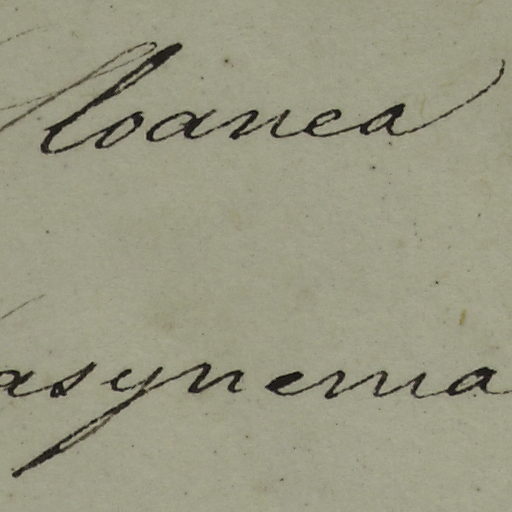 Sloanea
asynema